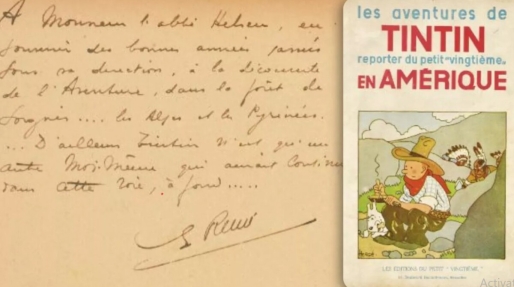 A Monsieur l'abbé Helsen, en
souvenir des bonnes années
sous sa direction, à la découverte
de l'Aventure, dans la forêt de
Soignes.... les Alpes et les Pyrénées.
... D'ailleurs Tintin n'est qu'un
autre Moi-Même qui aurait
dans cette voie, à fond.....
G Remi
les aventures de
TINTIN
reporter du petit "vingtième"
EN AMÉRIQUE
LES ÉDITIONS DU PETIT "VINGTIÈME"
Activa